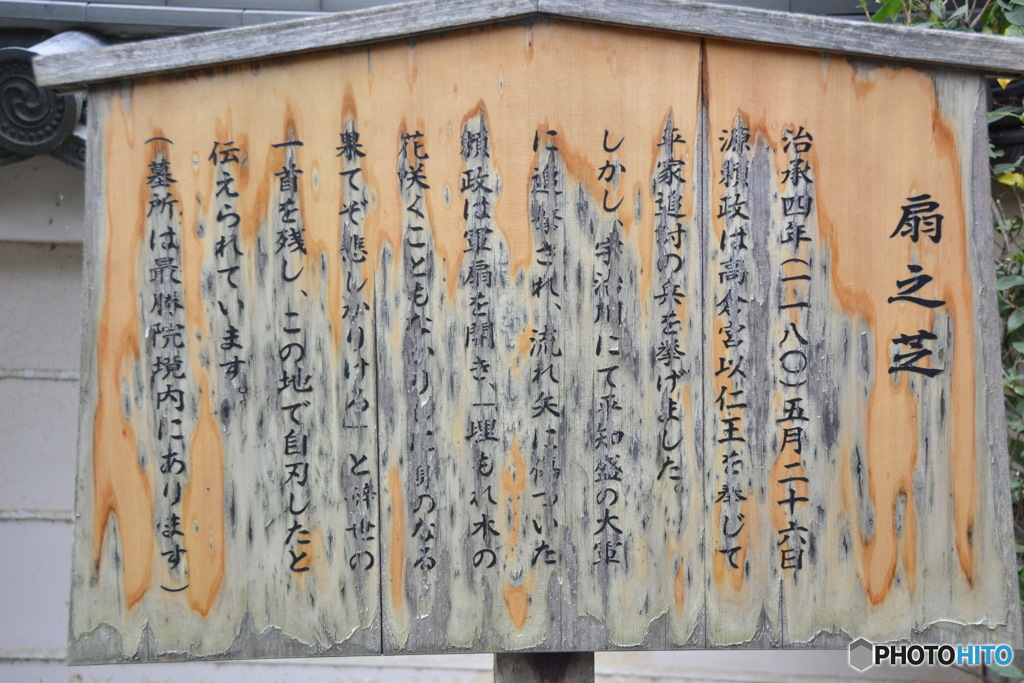 扇之芝
治承四年(一一八〇)五月二十六日
源頼政は高倉宮以仁王を奉じて
平家追討の兵を挙げました。
しかし、宇治川にて平知盛の大軍
に追撃され、流れ矢に傷ついた
頼政は軍扇を開き、「埋もれ木の
花咲くこともなかりしに身のなる
果てぞ悲しかりける」と辞世の
一首を残し、この地で自刃したと
伝えられています。
(墓所は最勝院境内にあります)
PHOTOHITO